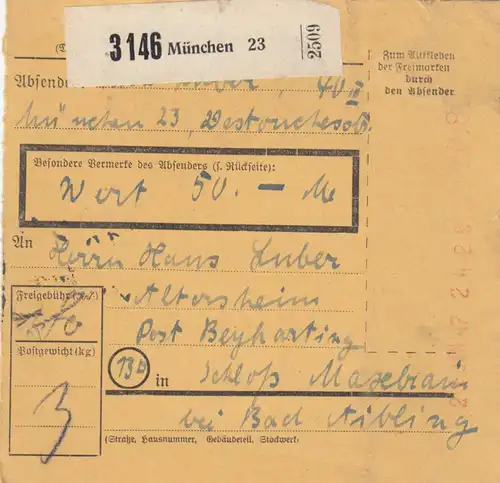 3146 München 23
2509
Absender
40 III
München 23,
Zum Aufkleben
der Freimarken
durch
den Absender
Besondere Vermerke des Absenders (s. Rückseite):
Wert 50.— M
An
Herrn Hans Huber
Altersheim
Post Beyharting
Freigebühr
Postgewicht (kg)
3
13b
in Schloß Maxlrain
bei Bad Aibling
(Straße, Hausnummer, Gebäudeteil, Stockwerk)